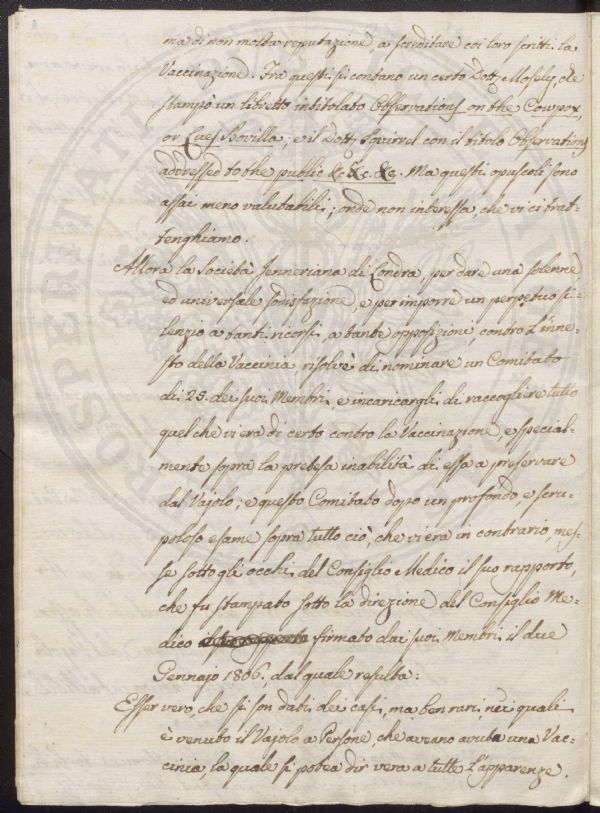 ma di non molta reputazione, a screditare coi loro scritti la
Vaccinazione. Fra questi si contano un certo Dott. Mosely, che
stampò un libretto intitolato Observations on the Cowpox,
or Lues Bovilla; e il Dott. Squirrel con il titolo Observations
addressed to the public &c. &c. &c. Ma questi opuscoli sono
assai meno valutabili; onde non interessa, che vi ci trat-
tenghiamo.
Allora la Società Jenneriana di Londra, per dare una solenne
ed universale sodisfazione, e per imporre un perpetuo si-
lenzio a tanti ricorsi, a tante opposizioni, contro l'inne-
sto della Vaccinia risolvè di nominare un Comitato
di 25. dei suoi Membri, e incaricargli di raccogliere tutto
quel che vi era di certo contro la Vaccinazione, e special-
mente sopra la pretesa inabilità di essa a preservare
dal Vajolo; e questo Comitato dopo un profondo e scru-
poloso esame sopra tutto ciò, che vi era in contrario, mes-
se sotto gli occhi del Consiglio Medico il suo rapporto,
che fu stampato sotto la direzione del Consiglio Me-
dico firmato dai suoi Membri il due
Gennajo 1806. dal quale resulta:
Esser vero, che si son dati dei casi, ma ben rari, nei quali
è venuto il Vajolo a Persone, che aveano avuta una Vac-
cinia, la quale si potea dir vera a tutte l'apparenze.